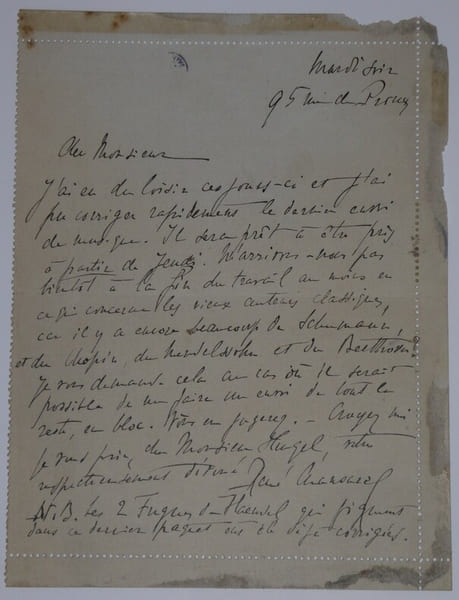 Mardi soir
95 rue de Prony
Cher Monsieur
J'ai eu du loisir ces jours-ci et j'ai
pu corriger rapidement le dernier envoi
de musique. Il sera prêt à être pris
à partir de Jeudi. N'arrivons-nous pas
bientôt à la fin du travail au moins en
ce qui concerne les vieux auteurs classiques,
car il y a encore beaucoup de Schumann,
et du Chopin, du Mendelssohn et du Beethoven.
Je vous demande cela au cas où il serait
possible de me faire un envoi de tout le
reste, en bloc. Vous en jugerez. — Croyez moi
je vous prie, cher Monsieur Heugel, votre
respectueusement dévoué René
N.B. Les 2 Fugues d'Haendel qui figurent
dans ce dernier paquet ont été déjà corrigées.